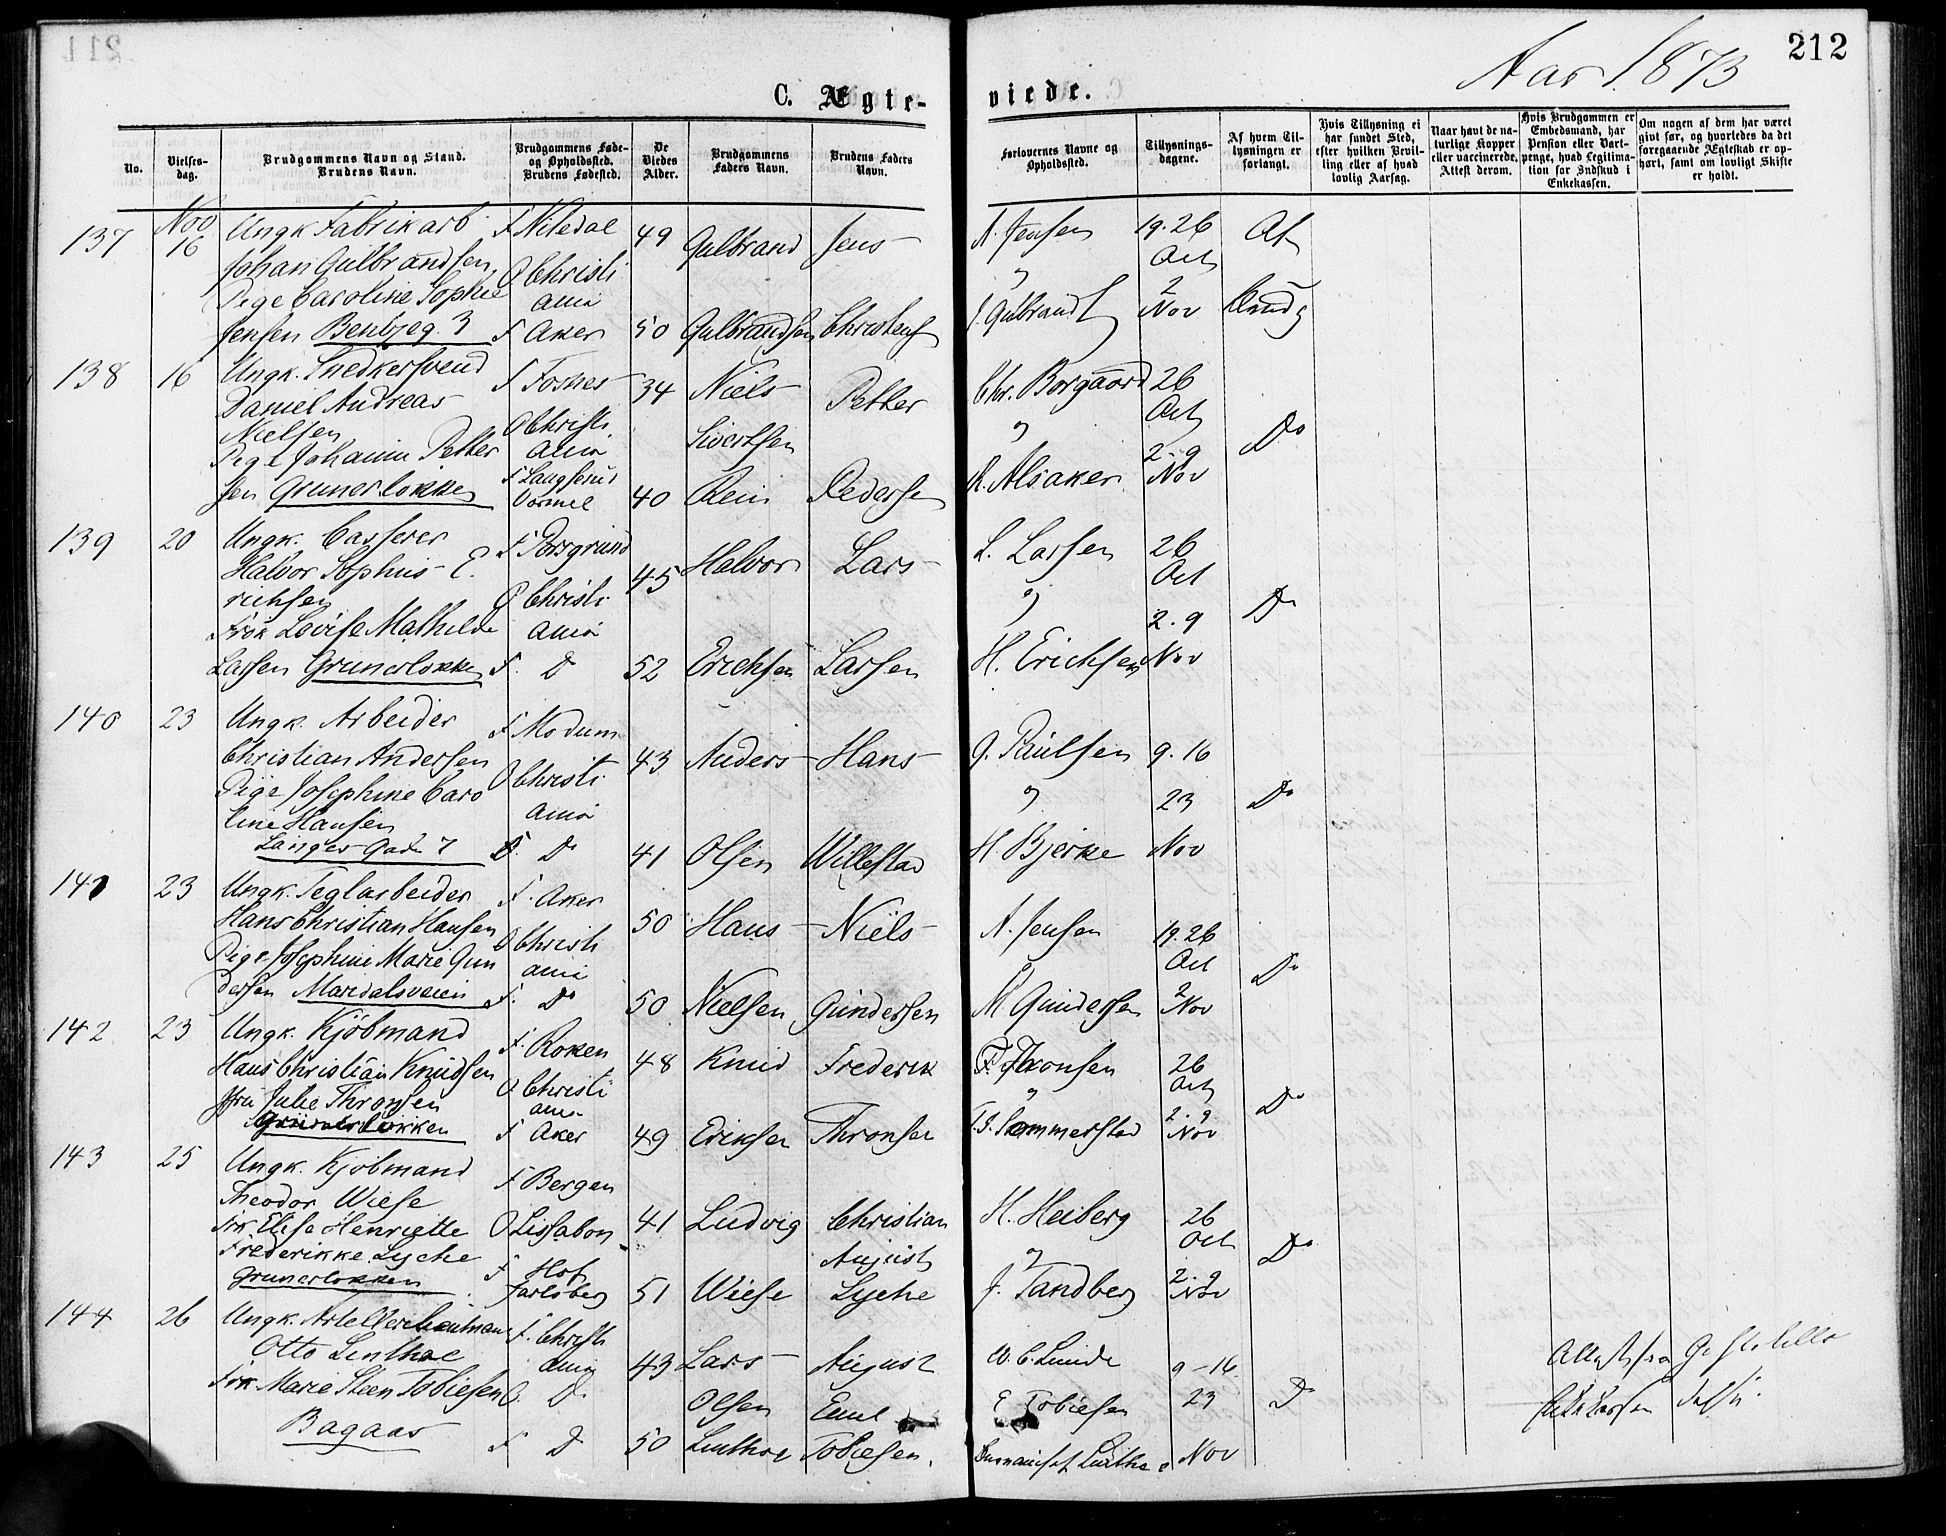 212
Aar 1873
C. Ægte-
viede.
No.
Vielses-
dag.
Brudgommens Navn og Stand.
Brudens Navn.
Brudgommens Føde-
og Opholdssted.
Brudens Fødested.
De
Viedes
Alder.
Brudgommens
Faders Navn.
Brudens Faders
Navn.
Forlovernes Navne og
Opholdssted.
Tillysnings-
dagene.
Af hvem Til-
lysningen er
forlangt.
Hvis Tillysning ei
har fundet Sted,
efter hvilken Bevil-
ling eller af hvad
lovlig Aarsag.
Naar havt de na-
turlige Kopper
eller vaccinerede.
Attest derom.
Hvis Brudgommen er
Embedsmand, har
Pension eller Vart-
penge, hvad Legitima-
tion for Indskud i
Enkekassen.
Om nogen af dem har været
givt før, og hvorledes da det
foregaaende Ægteskab er op-
hørt, samt om lovligt Skifte
er holdt.
137 Nov 16
Ungk Fabrikarb
Johan Gulbrandsen,
Pige Caroline Sophie
Jensen
F Nitedal
O Christi
ania
F Aker
49
50
Gulbrand
Gulbrandsen
Jens
A. Jensen
19. 26
Oct
2
Nov
Af
138 16
Ungk. Snedkersvend
Daniel Andreas
Nielsen
Pige Johanne Petter
sen Grunerløkken
F Fosnes
O Christi
ania
34
40
Niels
Sivertsen
Petter
Pedersen
Chr. Borgaard
K. Alsaker
26
Oct
2. 9
Nov
Do
139 20
Ungk. Casserer
Halvor Sophus E.
richsen
Frøk Lovise Mathilde
Larsen Grunerløkken
F Porsgrund
O Christi
ania
F. Do
45
52
Halvor
Erichsen
Lars
Larsen
L. Larsen
H. Erichsen
26
Oct
2. 9
Nov
Do
140 23
Ungk. Arbeider
Christian Andersen
Pige Josephine Caro
line Hansen
Langes Gade 7
F Modum
O Christi
ania
F. Do
43
41
Anders
Olsen
Hans
Willestad
G. Paulsen
H Bjerke
9. 16
23
Nov
Do
141 23
Ungk. Teglarbeider
Hans Christian Hansen
Pige Josephine Marie Gun
dersen Maridalsveien
F. Aker
O Christi
ania
F. Do
50
50
Hans
Nielsen
Niels
Gundersen
A. Jensen
M Gundersen
19. 26
Oct
2
Nov
Do
142 23
Ungk. Kjøbmand
Hans Christian Knudsen
Jfru Julie Thronsen
Grünerløkken
F. Røken
O Christi
ania
F Aker
48
49
Knud
Eriksen
Frederik
Thronsen
F. Thronsen
Sommerstad
26
Oct
2. 9
Nov
Do
143 25
Ungk. Kjøbmand
Theodor Wiese
Frk Elise Henriette
Frederikke Lyche
Grunerløkken
F Bergen
O Lissabon
F Hof
Jarlsberg
41
51
Ludvig
Wiese
Christian
August
Lyche
H. Heiberg
J. Tandberg
26
Oct
2. 9
Nov
Do
144 26
Ungk.
Otto Linthoe
Frk Marie Steen Tobiesen
Bagaas
F. Christi
ania
O. Do
F Do
43
50
Lars
Olsen
Linthoe
August
Emil
Tobiesen
E Tobiesen
9 - 16
23
Nov
Do